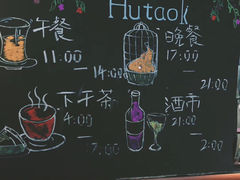 Hutaok
午餐
11:00
—
14:00
晚餐
17:00
—
21:00
下午茶
14:00
—
17:00
酒市
21:00
—
2:00